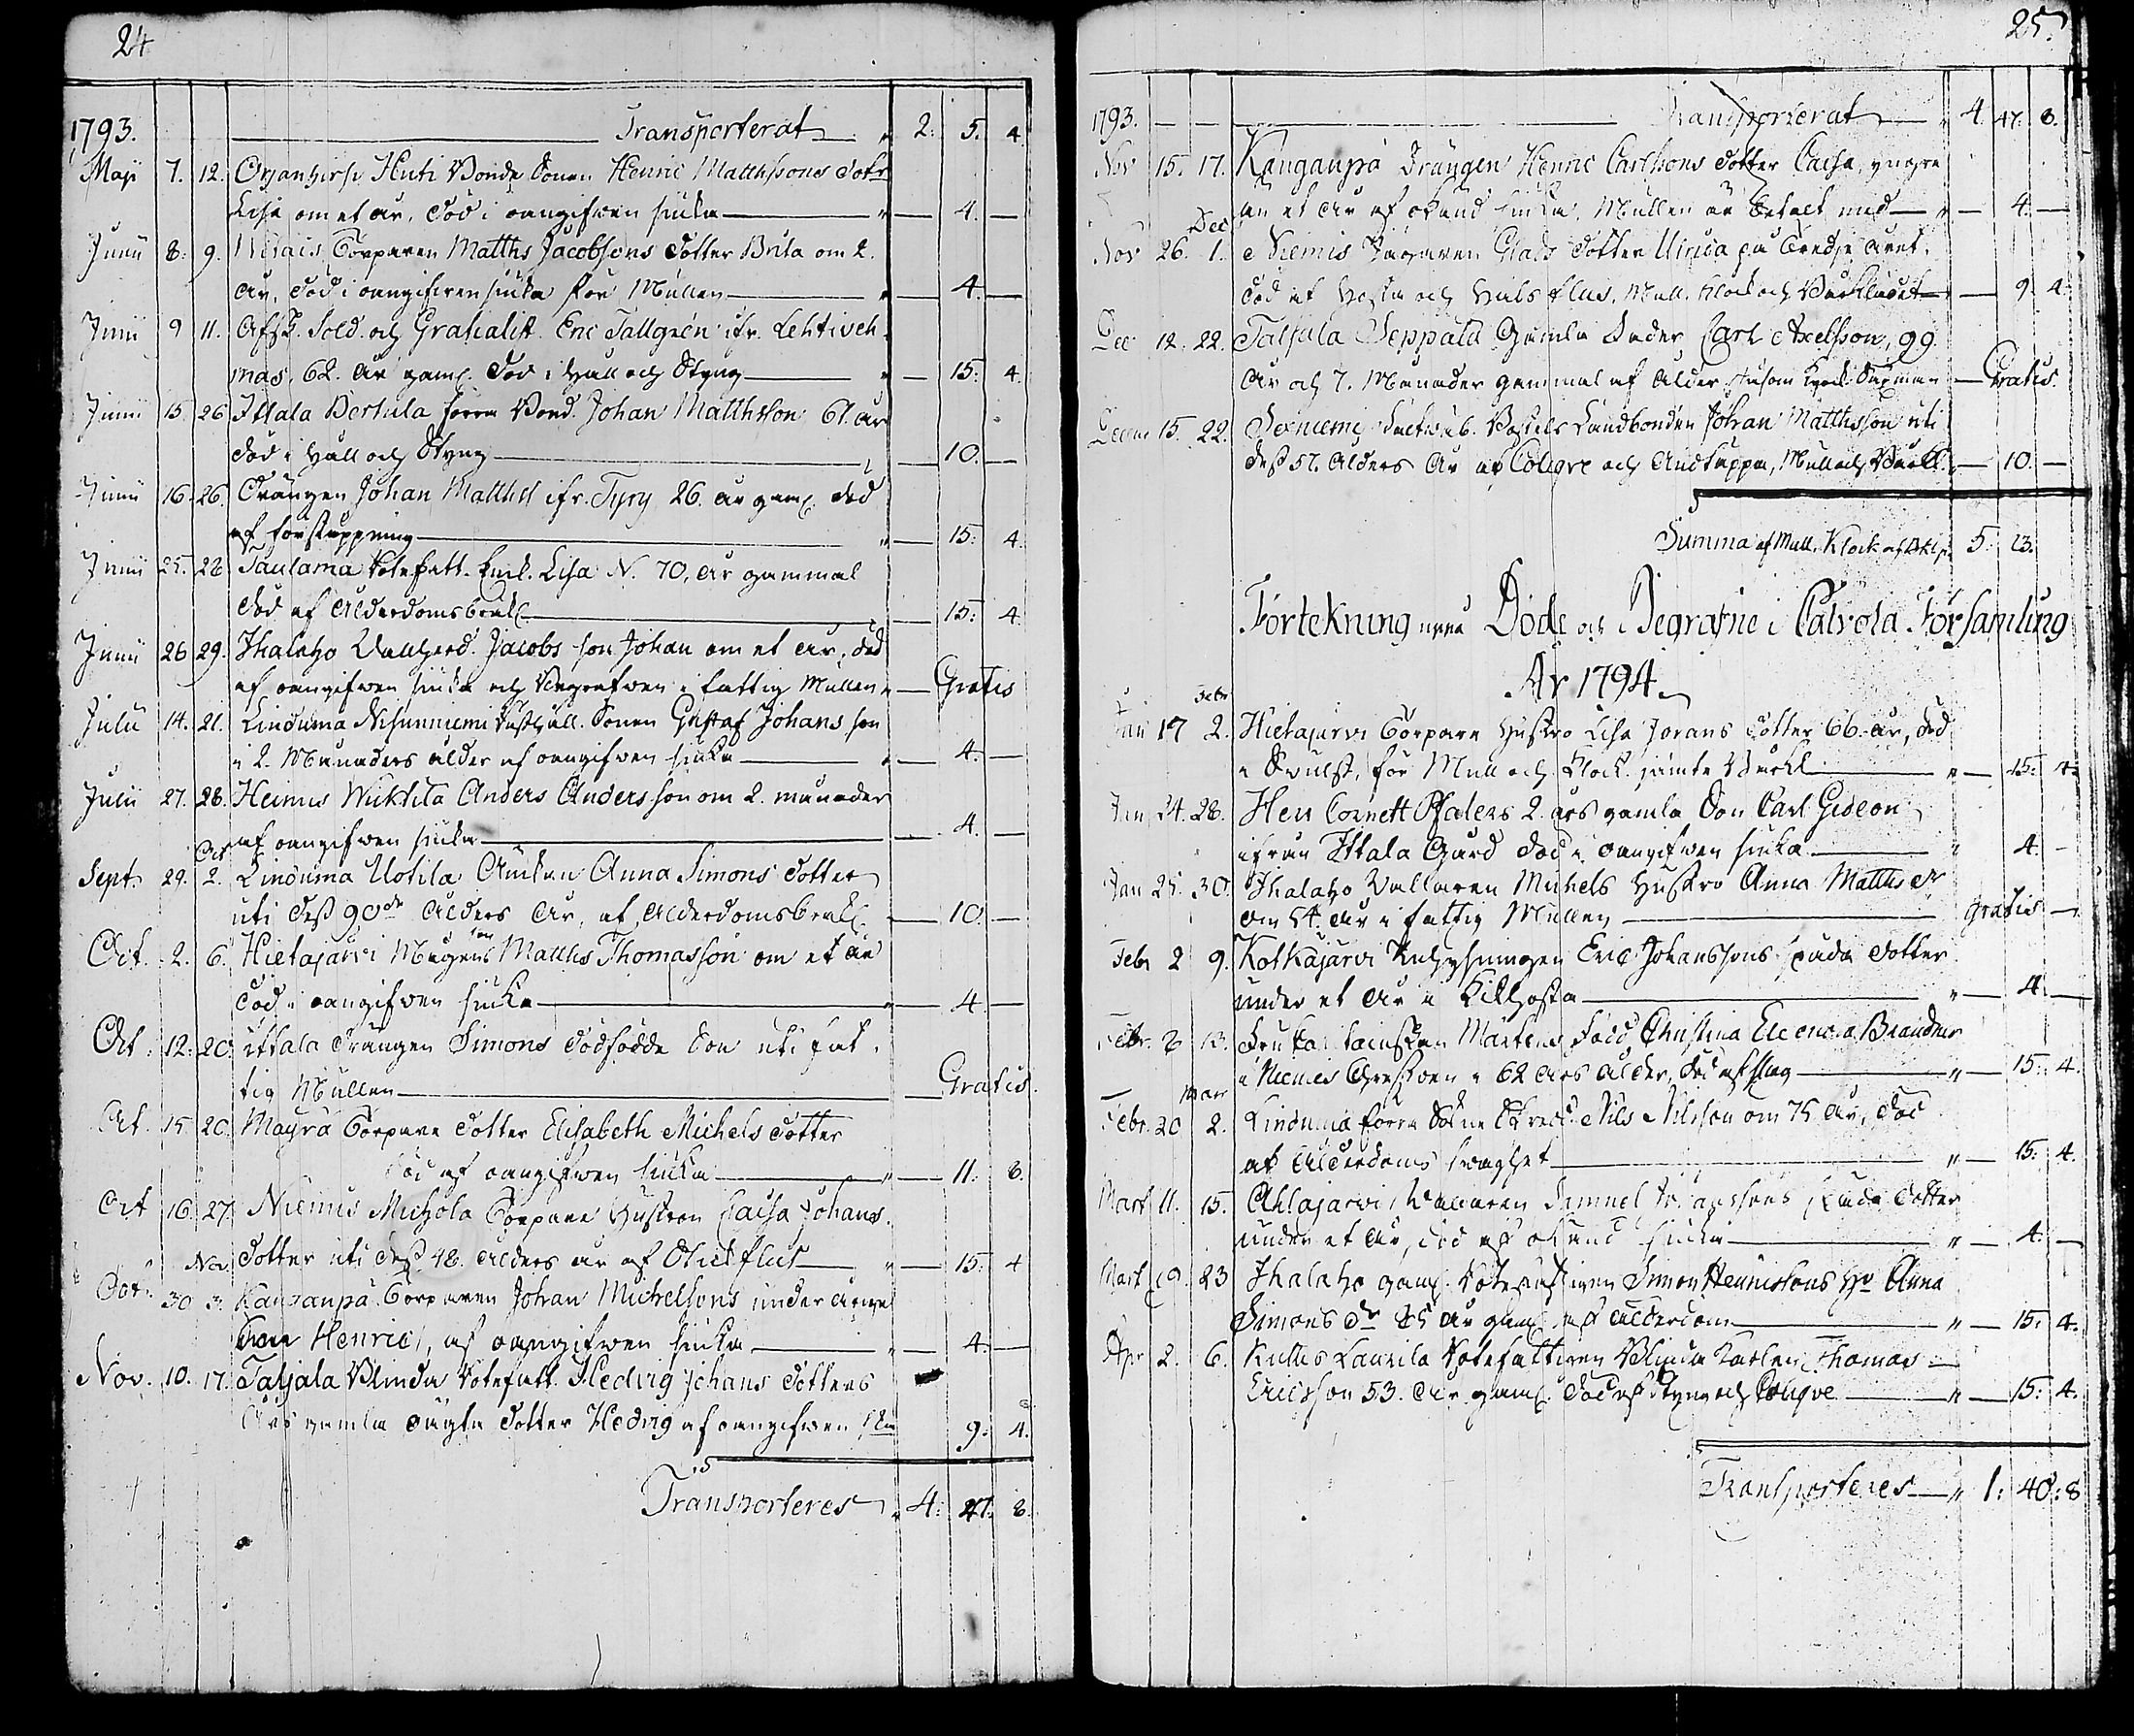 24
1793. Transporterat " 2: 5. 4.
Maji 7. 12. Orjanhirsi Huti Bonde Sonen Henric Matthssons Dotr
Lisa om et år, död i oangifwen siuka " — 4. —
Junii 8. 9. Torparen Matths Jacobsons Dotter Brita om 2.
år, död i oangifwen siuka för Mullen " — 4. —
Junii 9 11. Afsk. Sold. och Gratialist Eric Tallgrén ifr. Lehtiveh-
mas, 62. år gaml. död i håll och Styng " — 15: 4.
Junii 15 26 Ittala Bertula förra Bond. Johan Matthsson 61. år
död i håll och Styng — 10. —
Junii 16 26. Drängen Johan Matthss. ifr. Tyry 26. år gaml. död
af förstoppning " — 15: 4.
Junii 25. 28 Taulama Rotefatt. Enk. Lisa N. 70. år gammal
död af Ålderdomsbräckl. — 15: 4
Junii 26 29. Ihalaho Jacobs son Johan om et år, död
af oangifwen siuka och Begrafwen i fattig Mullen " — Gratis
Julii 14. 21. Lintuma Nisunniemi Sonen Gustaf Johans son
i 2. Månaders ålder af oangifwen siuka " — 4. —
Julii 27. 28. Heinus Wicktila Anders Anders son om 2. månader
af oangifwen siuka — 4. —
Oct
Sept. 29. 2. Lintuma Uotila Änkan Anna Simons dotter
uti dess 90de Ålders År, af Ålderdomsbräckl. — 10. —
Oct. 2. 6. Hietajärvi Mågens son Matths Thomasson om et år
död i oangifwen siuka " — 4. —
Oct. 12. 20. ittala Drängen Simons dödfödde Son uti fat-
tig Mullen — Gratis.
Oct. 15 20. Mayra Torpare dotter Elisabeth Michels dotter
död af oangifwen siuka " — 11. 8.
Oct 16. 27. Niemis Michola Torpare hustron Caisa Johans-
Nov. dotter uti dess 48. ålders år af Blodflus " — 15. 4
Octr. 30 3. Kangaspä Torparen Johan Michelsons under årige
Son Henric, af oangifwen siuka " — 4. —
Nov. 10. 17. Taljala Blinda Rotefatt. Hedvig Johans dotters
Års gamla oägta dotter Hedvig af oangifwen 9: 4.
Transporteres " 4: 47. 8.
25.
1793. — — Transporterat " 4. 47. 8.
Nov 15. 17. Kangaspä Drängen Henric Carlssons dotter Caisa, yngre
än et År af okänd siuka. Mullen är betalt med " — 4. —
Dec
Nov 26. 1. Niemis Glads dotter Ulrica på tredje året.
död af hosta och halsflus. Mull. klock och Bårkladet — 9. 4.
Dec 12. 22. Taljala Seppälä Gamla Carl Axelsson, 99.
År och 7. Månader gammal af Ålder — Gratis.
Decem 15. 22. Landbonden Johan Matthsson uti
dess 57. Ålders År af Colique och Andtäppa, Mull och Bårkl. — 10. —
Summa af Mull, Klock och Bkl. 5: 23.
Förtekning uppå Döde och Begrafne i Calvola Församling
År 1794.
Febr
Jan 17 2. Hietajarvi Torpare hustro Lisa Jorans dotter 66. år, död
i Swulst, för Mull och Klock. jämte Bårkl. " — 15: 4.
Jan 24. 28. Herr Cornett Pfalers 2. års gamla Son Carl Gideon
ifrån Ittala Gård död i oangifwen siuka " 4. —
Jan 25. 30. Ihalaho Wallaren Michels hustro Anna Matths dr
om 54. år i fattig Mullen gratis —
Febr 2 9. Kotkajarvi Inhysningen Eric Johanssons späda dotter
under et år i Kikhosta " — 4. —
Febr. 8 13. Fru Märtens född Christina Eleonora Brandner
i Niemis 62 Års ålder, död af slag " — 15: 4.
Mars
Febr. 20 2. Lintuma förra Sockne Nils Nilsson om 75 år, död
af Ålderdoms swaghet " — 15: 4.
Mart 11. 15. Ahlajarvi Wallaren Samuel späda dotter
under et år, död af okänd siuka " — 4. —
Mart 19. 23 Ihalaho gaml. Rotefattigen Simon Henricsons h:o Anna
Simons dr 85 år gaml. af ålderdom " — 15: 4.
Apr 2. 6. Kuttis Laurila Rotefattigen Blinda Karlen Thomas
Ericsson 53. år gaml. död af Styng och Colique " — 15: 4.
Transporteres " 1: 40: 8